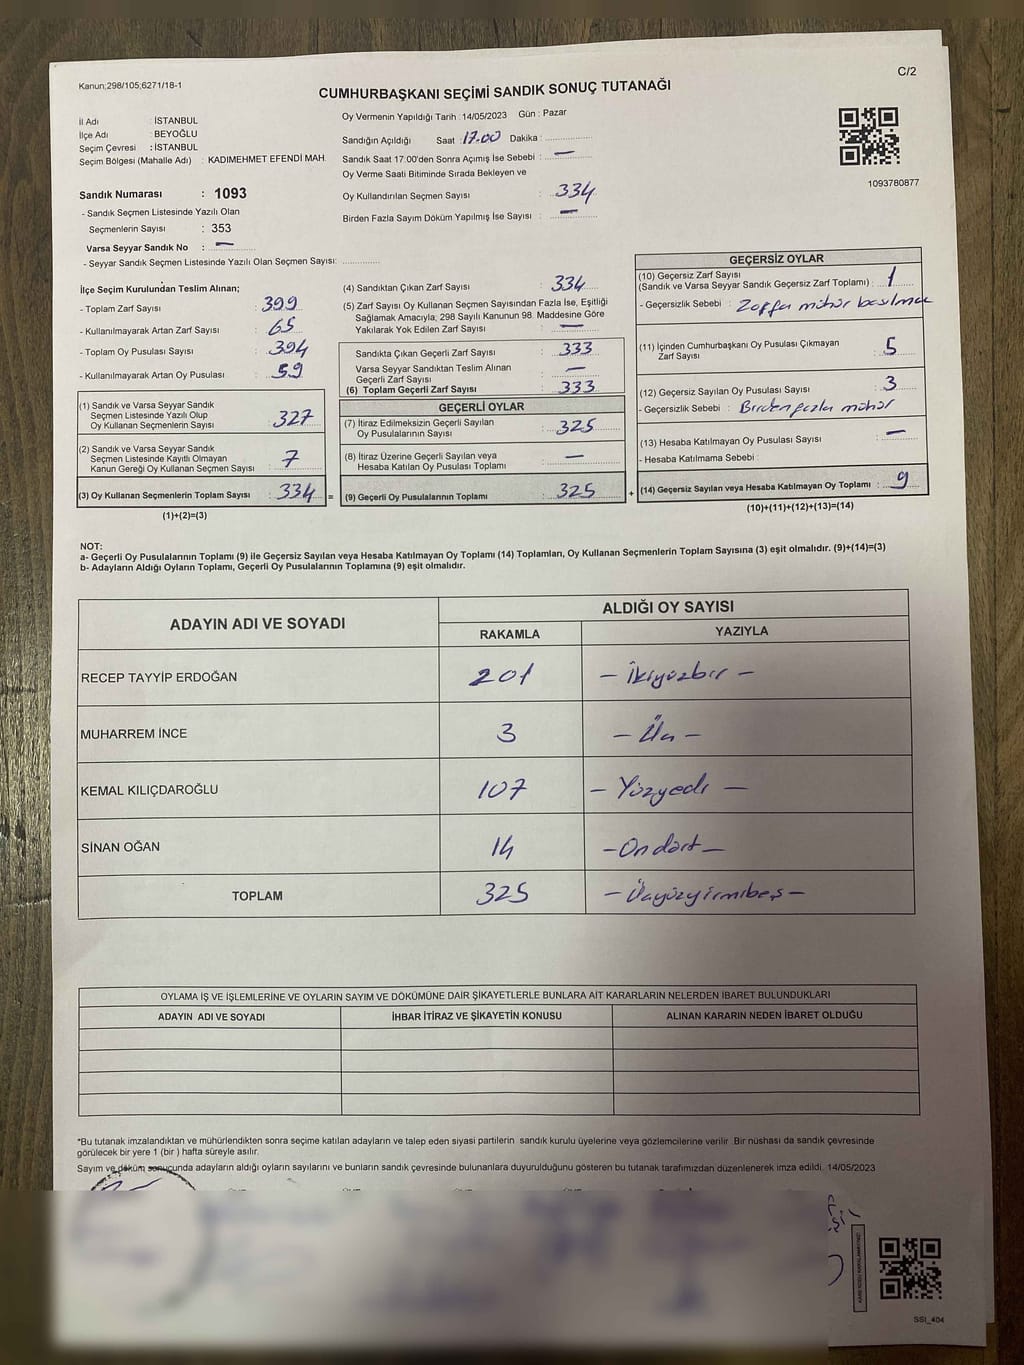 Kanun;298/105;6271/18-1
C/2
CUMHURBAŞKANI SEÇİMİ SANDIK SONUÇ TUTANAĞI
İl Adı : İSTANBUL
İlçe Adı : BEYOĞLU
Seçim Çevresi : İSTANBUL
Seçim Bölgesi (Mahalle Adı) : KADIMEHMET EFENDİ MAH.
Sandık Numarası : 1093
- Sandık Seçmen Listesinde Yazılı Olan
Seçmenlerin Sayısı : 353
Varsa Seyyar Sandık No : —
- Seyyar Sandık Seçmen Listesinde Yazılı Olan Seçmen Sayısı: ..............
Oy Vermenin Yapıldığı Tarih : 14/05/2023 Gün : Pazar
Sandığın Açıldığı Saat : 17.00 Dakika : ..............
Sandık Saat 17:00'den Sonra Açımış İse Sebebi : —
Oy Verme Saati Bitiminde Sırada Bekleyen ve
Oy Kullandırılan Seçmen Sayısı : 334
Birden Fazla Sayım Döküm Yapılmış İse Sayısı : —
1093780877
İlçe Seçim Kurulundan Teslim Alınan;
- Toplam Zarf Sayısı : 399
- Kullanılmayarak Artan Zarf Sayısı : 65
- Toplam Oy Pusulası Sayısı : 394
- Kullanılmayarak Artan Oy Pusulası : 59
(1) Sandık ve Varsa Seyyar Sandık
Seçmen Listesinde Yazılı Olup
Oy Kullanan Seçmenlerin Sayısı : 327
(2) Sandık ve Varsa Seyyar Sandık
Seçmen Listesinde Kayıtlı Olmayan
Kanun Gereği Oy Kullanan Seçmen Sayısı : 7
(3) Oy Kullanan Seçmenlerin Toplam Sayısı : 334 =
(1)+(2)=(3)
(4) Sandıktan Çıkan Zarf Sayısı : 334
(5) Zarf Sayısı Oy Kullanan Seçmen Sayısından Fazla İse, Eşitliği
Sağlamak Amacıyla, 298 Sayılı Kanunun 98. Maddesine Göre
Yakılarak Yok Edilen Zarf Sayısı : —
Sandıkta Çıkan Geçerli Zarf Sayısı : 333
Varsa Seyyar Sandıktan Teslim Alınan
Geçerli Zarf Sayısı : —
(6) Toplam Geçerli Zarf Sayısı : 333
GEÇERLİ OYLAR
(7) İtiraz Edilmeksizin Geçerli Sayılan
Oy Pusulalarının Sayısı : 325
(8) İtiraz Üzerine Geçerli Sayılan veya
Hesaba Katılan Oy Pusulası Toplamı : —
(9) Geçerli Oy Pusulalarının Toplamı : 325 +
GEÇERSİZ OYLAR
(10) Geçersiz Zarf Sayısı
(Sandık ve Varsa Seyyar Sandık Geçersiz Zarf Toplamı) : 1
- Geçersizlik Sebebi : Zarfa mühür basılması
(11) İçinden Cumhurbaşkanı Oy Pusulası Çıkmayan
Zarf Sayısı : 5
(12) Geçersiz Sayılan Oy Pusulası Sayısı : 3
- Geçersizlik Sebebi : Birden fazla mühür
(13) Hesaba Katılmayan Oy Pusulası Sayısı : —
- Hesaba Katılmama Sebebi :
(14) Geçersiz Sayılan veya Hesaba Katılmayan Oy Toplamı : 9
(10)+(11)+(12)+(13)=(14)
NOT:
a- Geçerli Oy Pusulalarının Toplamı (9) ile Geçersiz Sayılan veya Hesaba Katılmayan Oy Toplamı (14) Toplamları, Oy Kullanan Seçmenlerin Toplam Sayısına (3) eşit olmalıdır. (9)+(14)=(3)
b- Adayların Aldığı Oyların Toplamı, Geçerli Oy Pusulalarının Toplamına (9) eşit olmalıdır.
ADAYIN ADI VE SOYADI
ALDIĞI OY SAYISI
RAKAMLA YAZIYLA
RECEP TAYYİP ERDOĞAN 201 — İkiyüzbir —
MUHARREM İNCE 3 — Üç —
KEMAL KILIÇDAROĞLU 107 — Yüzyedi —
SİNAN OĞAN 14 — Ondört —
TOPLAM 325 — Üçyüzyirmibeş —
OYLAMA İŞ VE İŞLEMLERİNE VE OYLARIN SAYIM VE DÖKÜMÜNE DAİR ŞİKAYETLERLE BUNLARA AİT KARARLARIN NELERDEN İBARET BULUNDUKLARI
ADAYIN ADI VE SOYADI İHBAR İTİRAZ VE ŞİKAYETİN KONUSU ALINAN KARARIN NEDEN İBARET OLDUĞU
*Bu tutanak imzalandıktan ve mühürlendikten sonra seçime katılan adayların ve talep eden siyasi partilerin sandık kurulu üyelerine veya gözlemcilerine verilir .Bir nüshası da sandık çevresinde
görülecek bir yere 1 (bir ) hafta süreyle asılır.
Sayım ve döküm sonucunda adayların aldığı oyların sayılarını ve bunların sandık çevresinde bulunanlara duyurulduğunu gösteren bu tutanak tarafımızdan düzenlenerek imza edildi. 14/05/2023
SSI_404